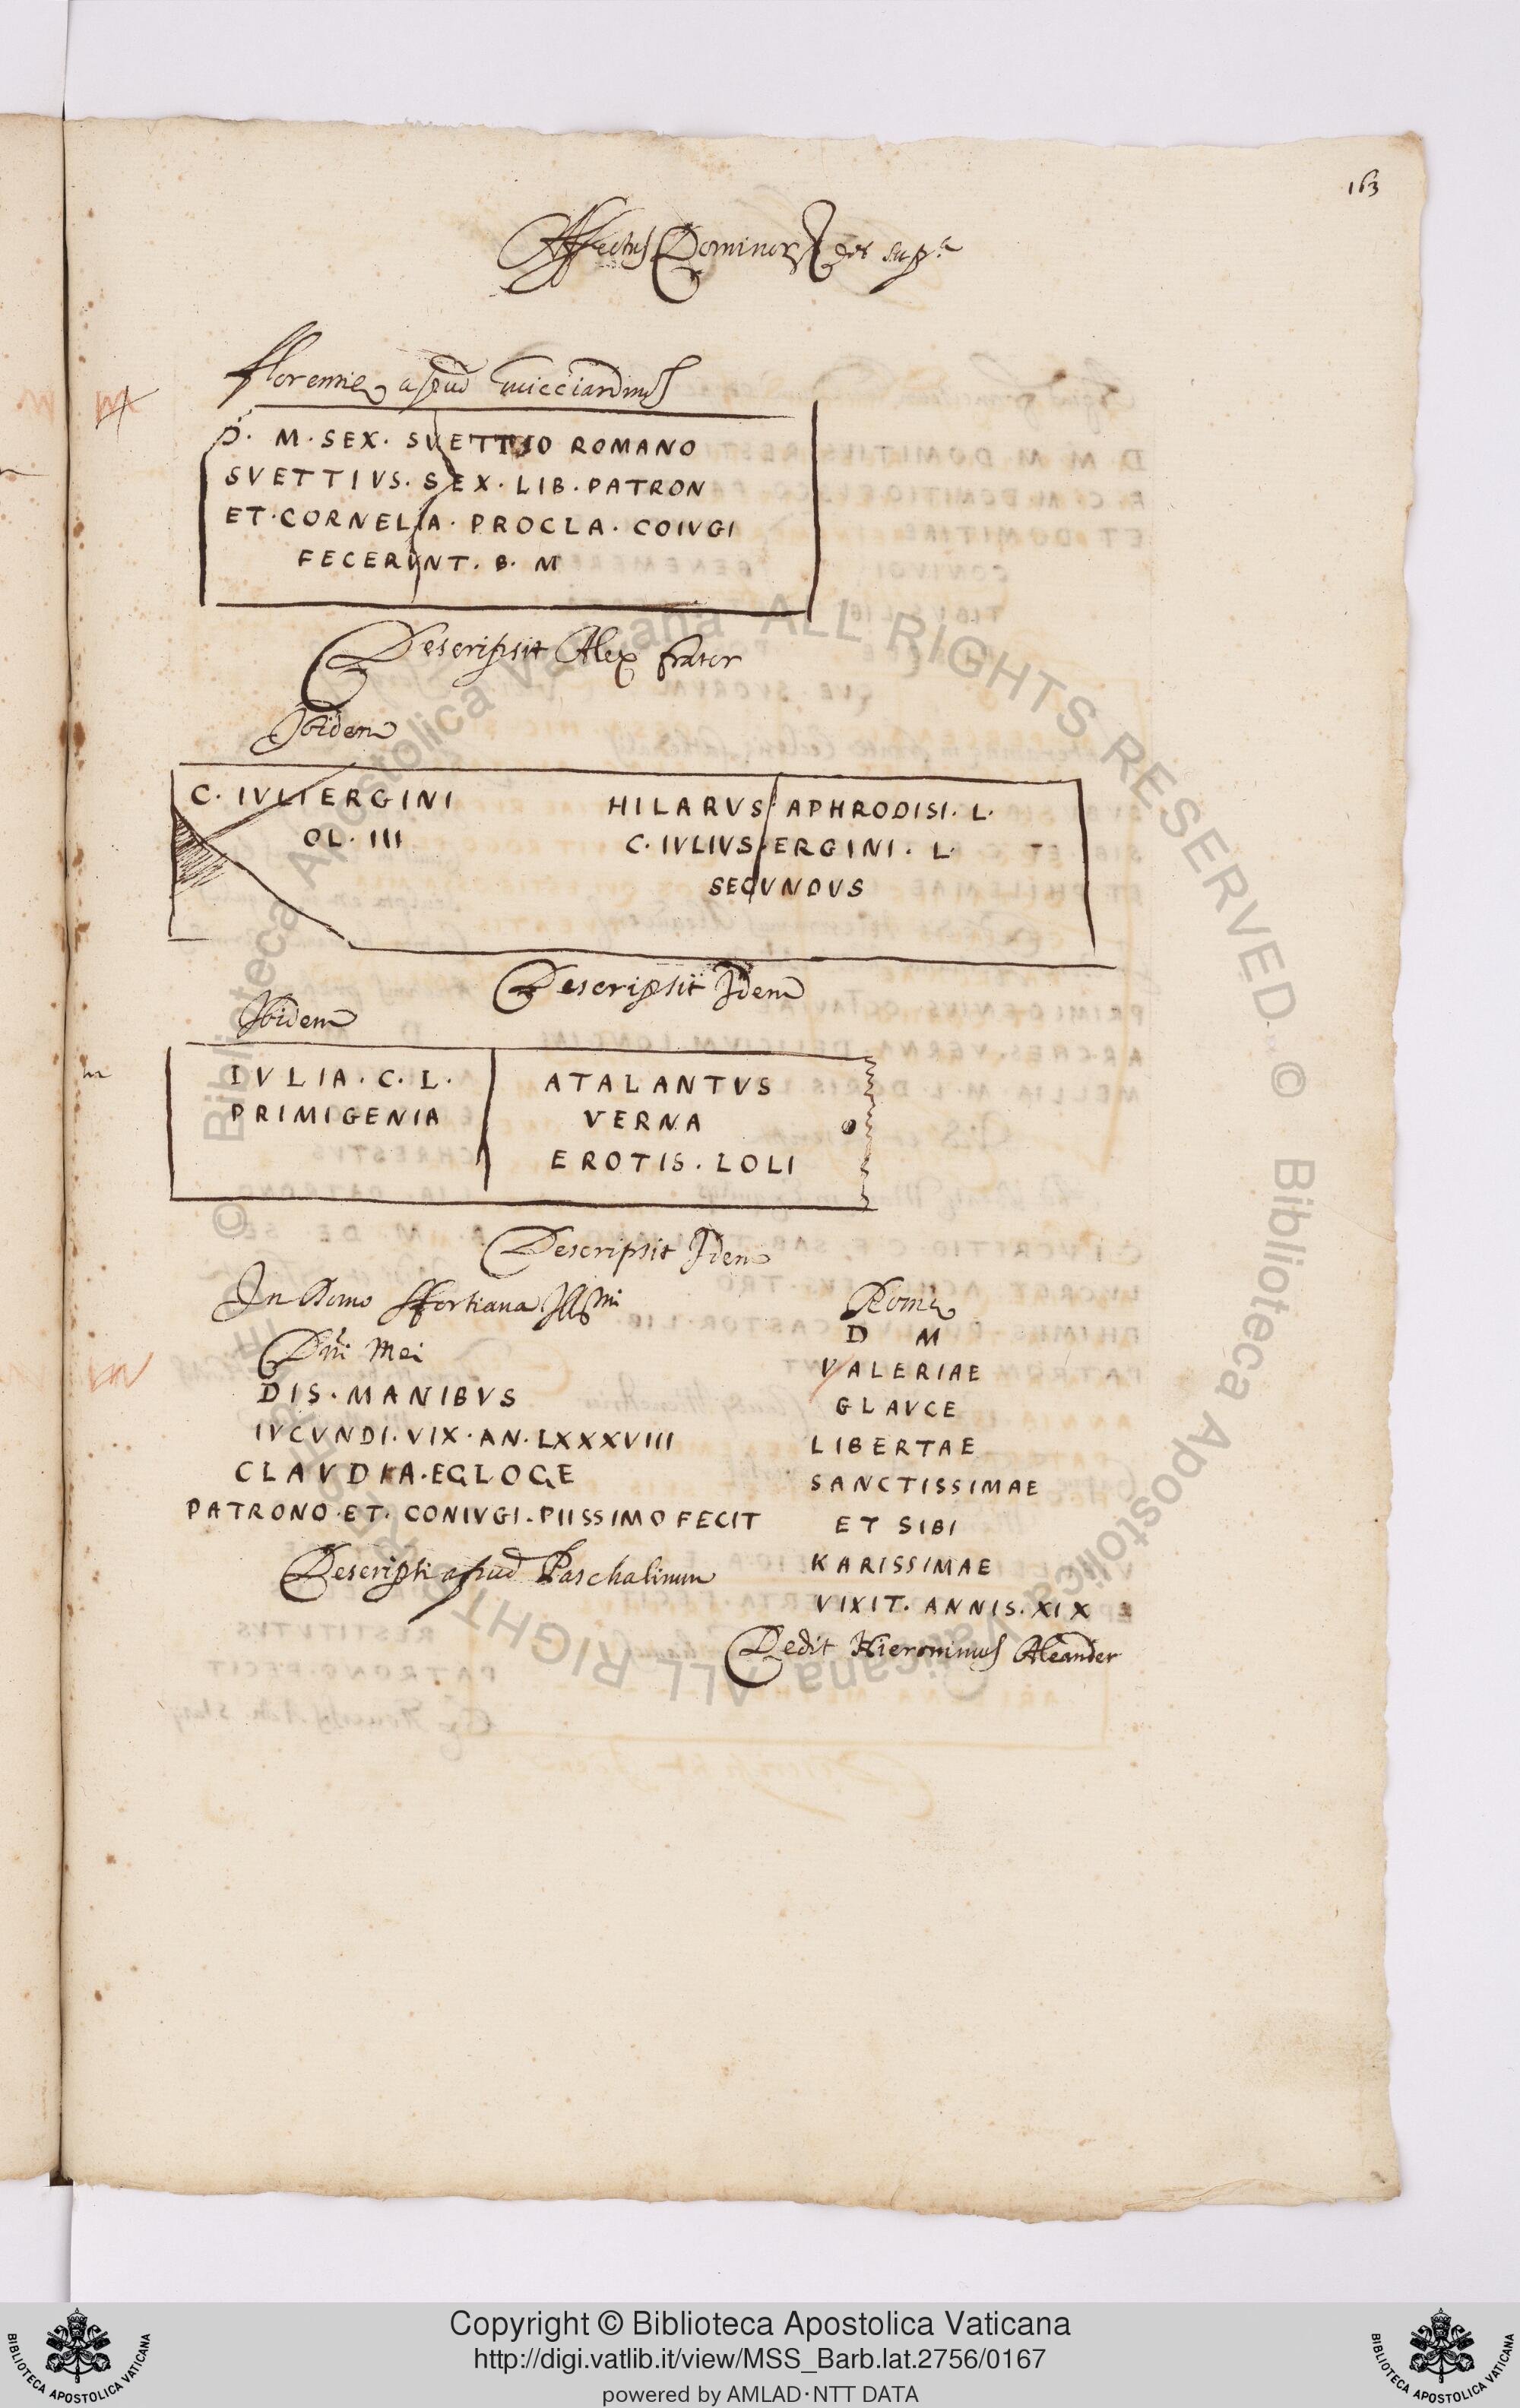 163
Affectus Dominor
Florentiæ apud Guicciardinus
D. M. SEX. SVETTIO ROMANO
SVETTIVS. SEX. LIB. PATRON
ET. CORNELIA. PROCLA. COIVGI
FECERVNT. B. M
Descripsit Alex frater
Ibidem
C. IVLI ERGINI
OL. III
HILARVS APHRODISI. L.
C. IVLIVS. ERGINI. L.
SECVNDVS
Descripsit Idem
Ibidem
IVLIA. C. L.
PRIMIGENIA
ATALANTVS
VERNA
EROTIS. LOLI
Descripsit Idem
In Domo Sfortiana Illmi
Dni Mei
DIS. MANIBVS
IVCVNDI. VIX. AN. LXXXVIII
CLAVDIA. EGLOGE
PATRONO. ET. CONIVGI. PIISSIMO FECIT
Descripsi apud Paschalinum
Romæ
D M
VALERIAE
GLAVCE
LIBERTAE
SANCTISSIMAE
ET SIBI
KARISSIMAE
VIXIT. ANNIS. XIX
Dedit Hieronimus Aleander
© Biblioteca Apostolica Vaticana ALL RIGHTS RESERVED
Copyright © Biblioteca Apostolica Vaticana
http://digi.vatlib.it/view/MSS_Barb.lat.2756/0167
powered by AMLAD·NTT DATA
BIBLIOTECA APOSTOLICA VATICANA
BIBLIOTECA APOSTOLICA VATICANA